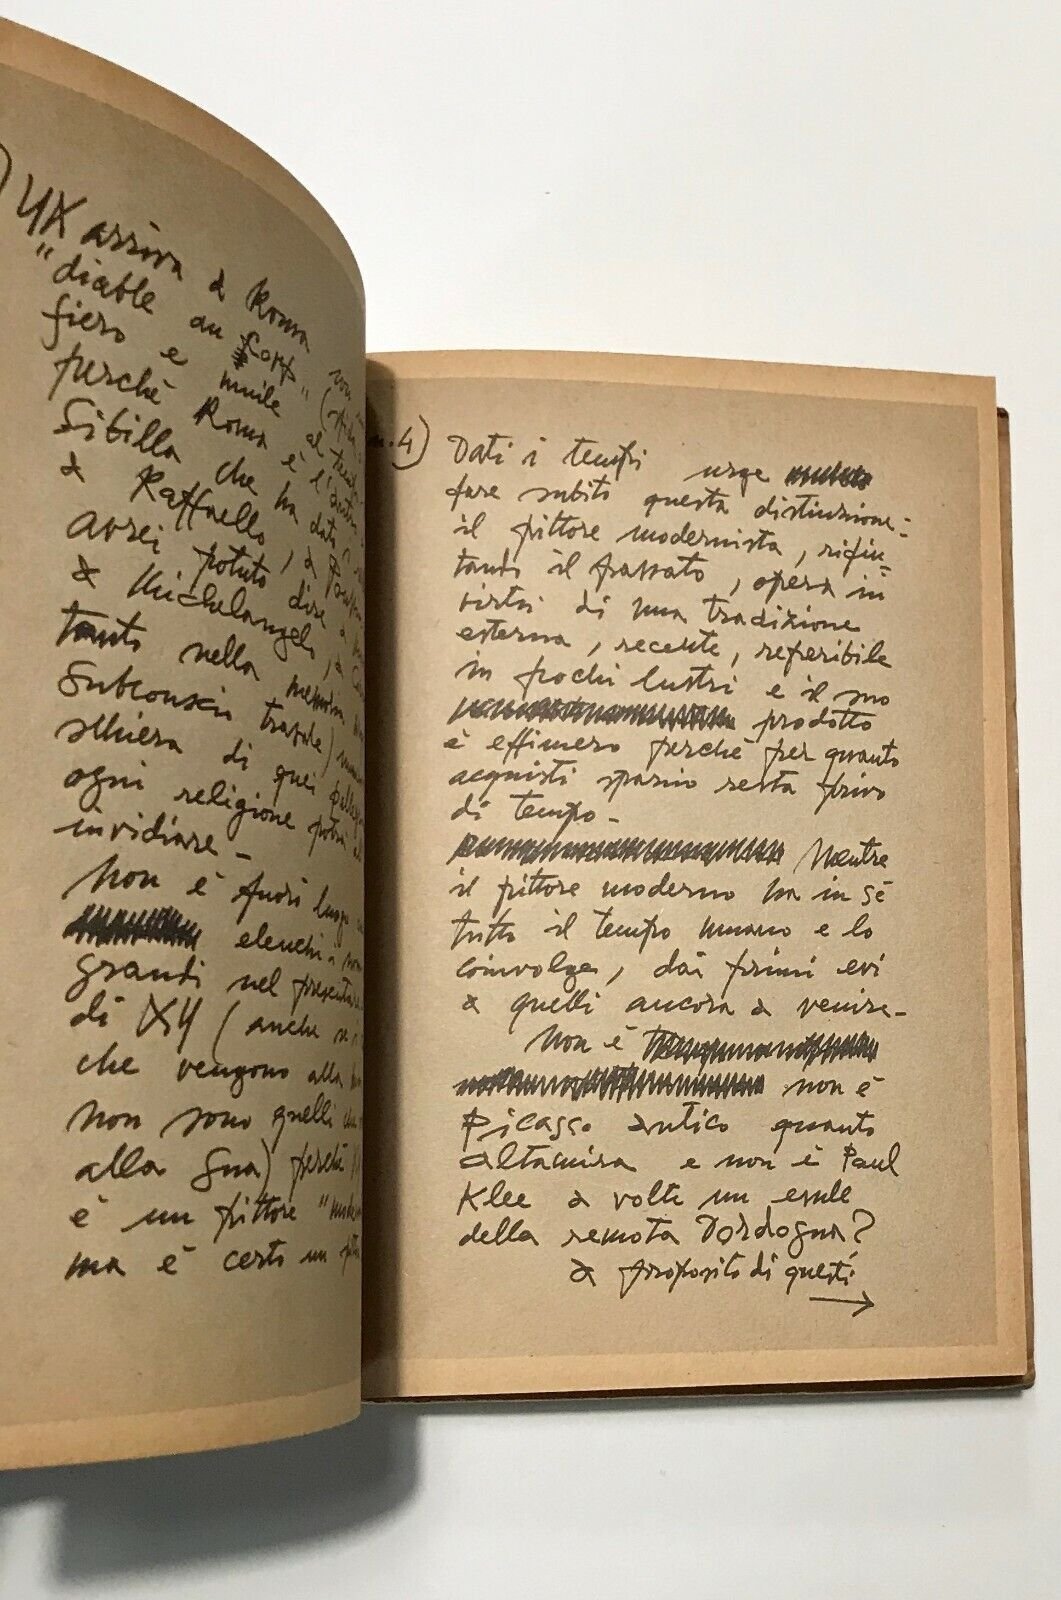 YX arriva a Roma
"diable au corp"
fiero e umile al
perchè Roma è l'
Sibilla che ha dato
a Raffaello, a
avrei potuto dire a
a Michelangelo, a
tanto nella memoria
schiera di quei
ogni religione potrà
invidiare -
Non è fuori luogo
elenchi i
grandi nel presentare
di XY (anche se
che vengono alla
non sono quelli
alla sua) perchè
è un pittore "
ma è certo un
n. 4) Dati i tempi urge
fare subito questa distinzione:
il pittore modernista, rifiu-
tando il passato, opera in
virtù di una tradizione
esterna, recente, reperibile
in pochi lustri e il suo
prodotto
è effimero perchè per quanto
acquisti spazio resta privo
di tempo -
Mentre
il pittore moderno ha in sé
tutto il tempo umano e lo
coinvolge, dai primi evi
a quelli ancora a venire -
Non è
non è
Picasso antico quanto
Altamira e non è Paul
Klee a volte un esule
della remota Dordogna?
A proposito di questi
→